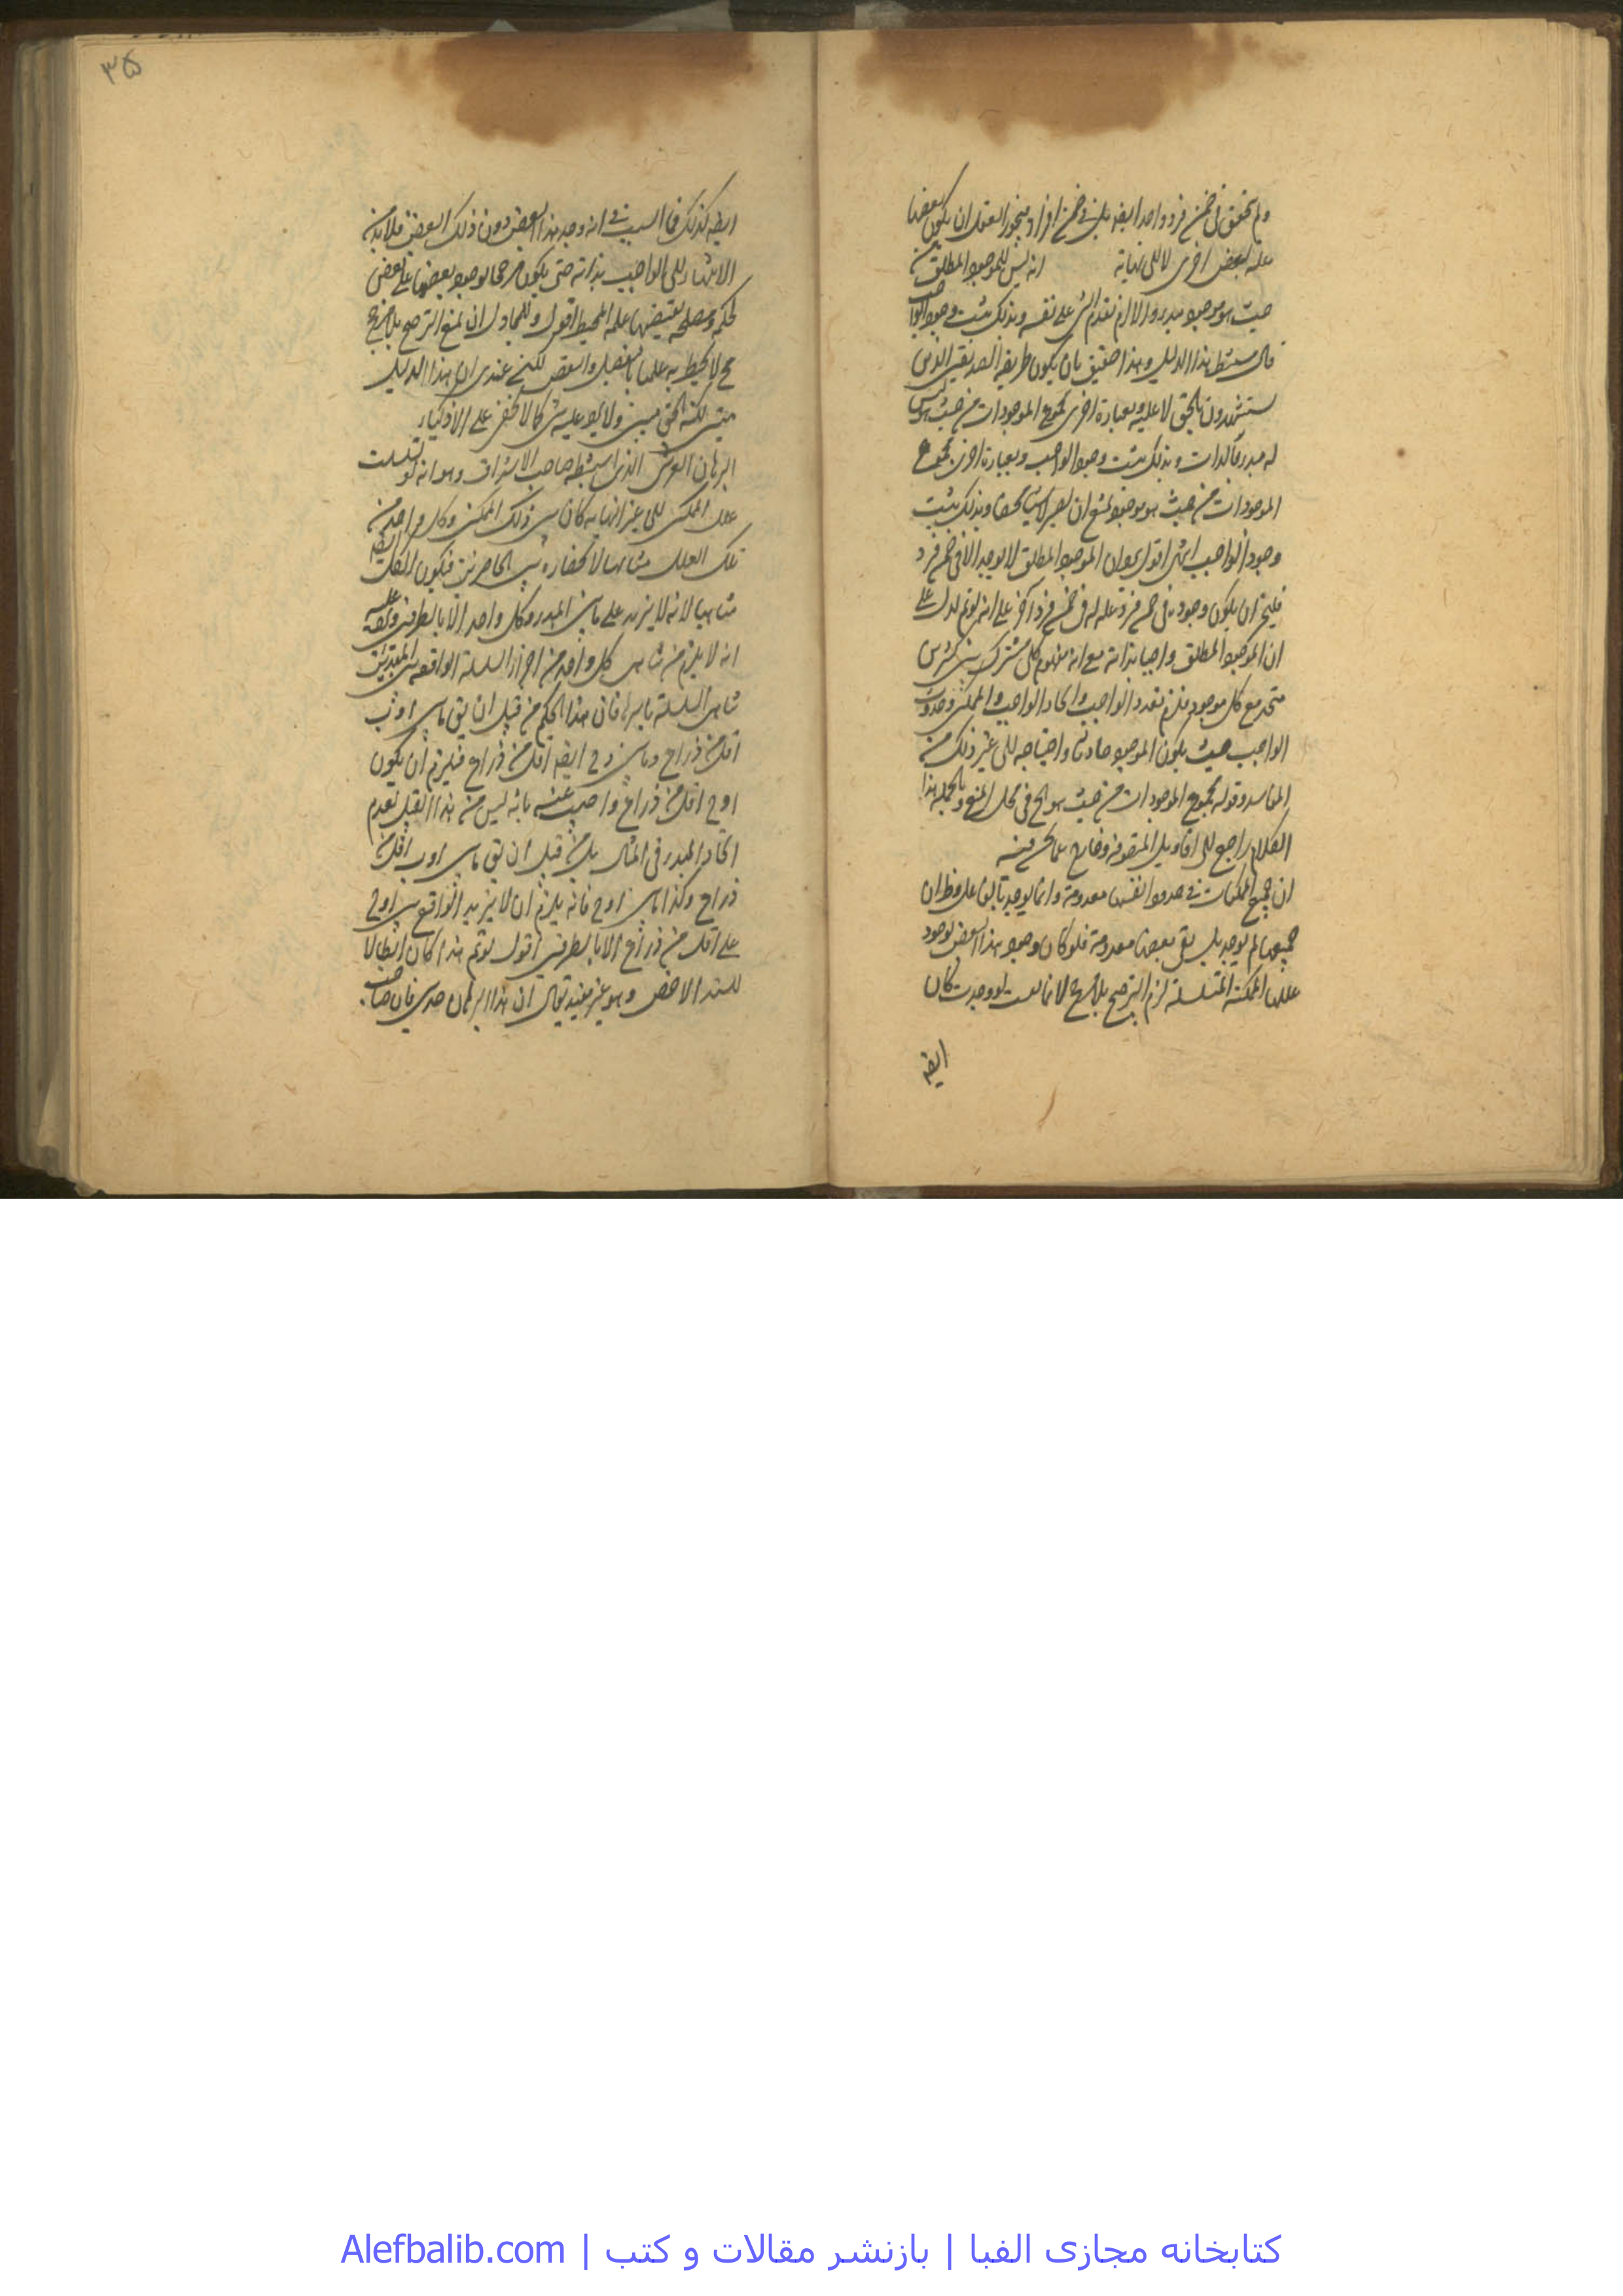 ولم يتحقق في ضمن فرد واحد ايضه بل في ضمن افراد فيجوز العقل ان يكون بعضها
علة لبعض اخرى لا الى نهاية انه ليس للموجود المطلق من
حيث هو موجود مبدء والا لزم تقدم الشئ على نفسه وبذلك يثبت وجود الواجب
قال مستنبط هذا الدليل وهذا حقيق بان يكون طريقة الصديقين الذين
يستشهدون بالحق لا عليه وبعبارة اخرى مجموع الموجودات من حيث هو ليس
له مبدء بالذات وبذلك يثبت وجود الواجب وبعبارة اخرى مجموع
الموجودات من حيث هو موجود يمتنع ان يصير لا شيئا محضا وبذلك يثبت
وجود الواجب انتهى اقول ان الموجود المطلق لا يوجد الا في ضمن فرد
فليجز ان يكون وجوده في ضمن فرد علة له في ضمن فرد آخر على انه لو تم لدل على
ان الموجود المطلق واجبا بذاته مع انه مفهوم كلي مشترك بين كثيرين
متحد مع كل موجود فلزم تعدد الواجب واتحاد الواجب والممكن وحدوث
الواجب حيث يكون الموجود حادثا واحتياجه الى غير ذلك من
المفاسد وقوله مجموع الموجودات من حيث هو الخ في محل المنع وبالجملة هذا
الكلام راجع الى اقاويل المتصوفة وخارج عما نحن فيه
ان جميع الممكنات في حدود انفسها معدومة وانما يوجد بالعلة وظ ان
جميعها لم يوجد بل بقي بعضها معدومة فلو كان وجود هذا البعض لوجود
عللها الممكنة المتسلسلة لزم الترجيح بلا مرجح لو وجدت كان
ايضه
٣٥
ايضه كذلك فما السبب في انه وجد هذا البعض دون ذلك البعض فلا بد من
الانتهاء الى الواجب بذاته حتى يكون مرجحا لوجود بعضها على بعض
لحكم ومصلحة يقتضيها علمه المحيط اقول وللمجادل ان يمنع الترجيح بلا مرجح
مح لا يحيط به علمنا بالتفصيل والنقص لكني عندي ان هذا الدليل
متين لكنه الحق مبين ولا يرد عليه شئ كما لا يخفى على الاذكياء
البرهان العرشي الذي استنبطه صاحب الاشراق وهو انه لو تسلسلت
علل الممكن الى غير النهاية كان بين ذلك الممكن وكل واحد من
تلك العلل متناهيا لانحصاره بين الحاصرين فيكون الكل ايضه
متناهيا لانه لا يزيد على ما بين المبدء وكل واحد الا بالطرفين عليه
انه لا يلزم من تناهي كل واحد من اجزاء السلسلة الواقعة بين
تناهي السلسلة باسرها فان هذا الحكم من قبيل ان يق ما بين ا وب
اقل من ذراع وما بين ب و ج ايضه اقل من ذراع فيلزم ان يكون
ا و ج اقل من ذراع واجيب عنه بانه ليس من هذا القبيل لعدم
اتحاد المبدء في المثال بل من قبيل ان يق ما بين ا و ب اقل من
ذراع وكذا ما بين ا و ج فانه يلزم ان لا يزيد الواقع بين ا و ج
على اقل من ذراع الا بالطرفين اقول لو تم هذا كان ابطالا
للسند الاخص وهو غير مفيد قال ان هذا البرهان حدسي فان صاحب
كتابخانه مجازی الفبا | بازنشر مقالات و کتب | Alefbalib.com